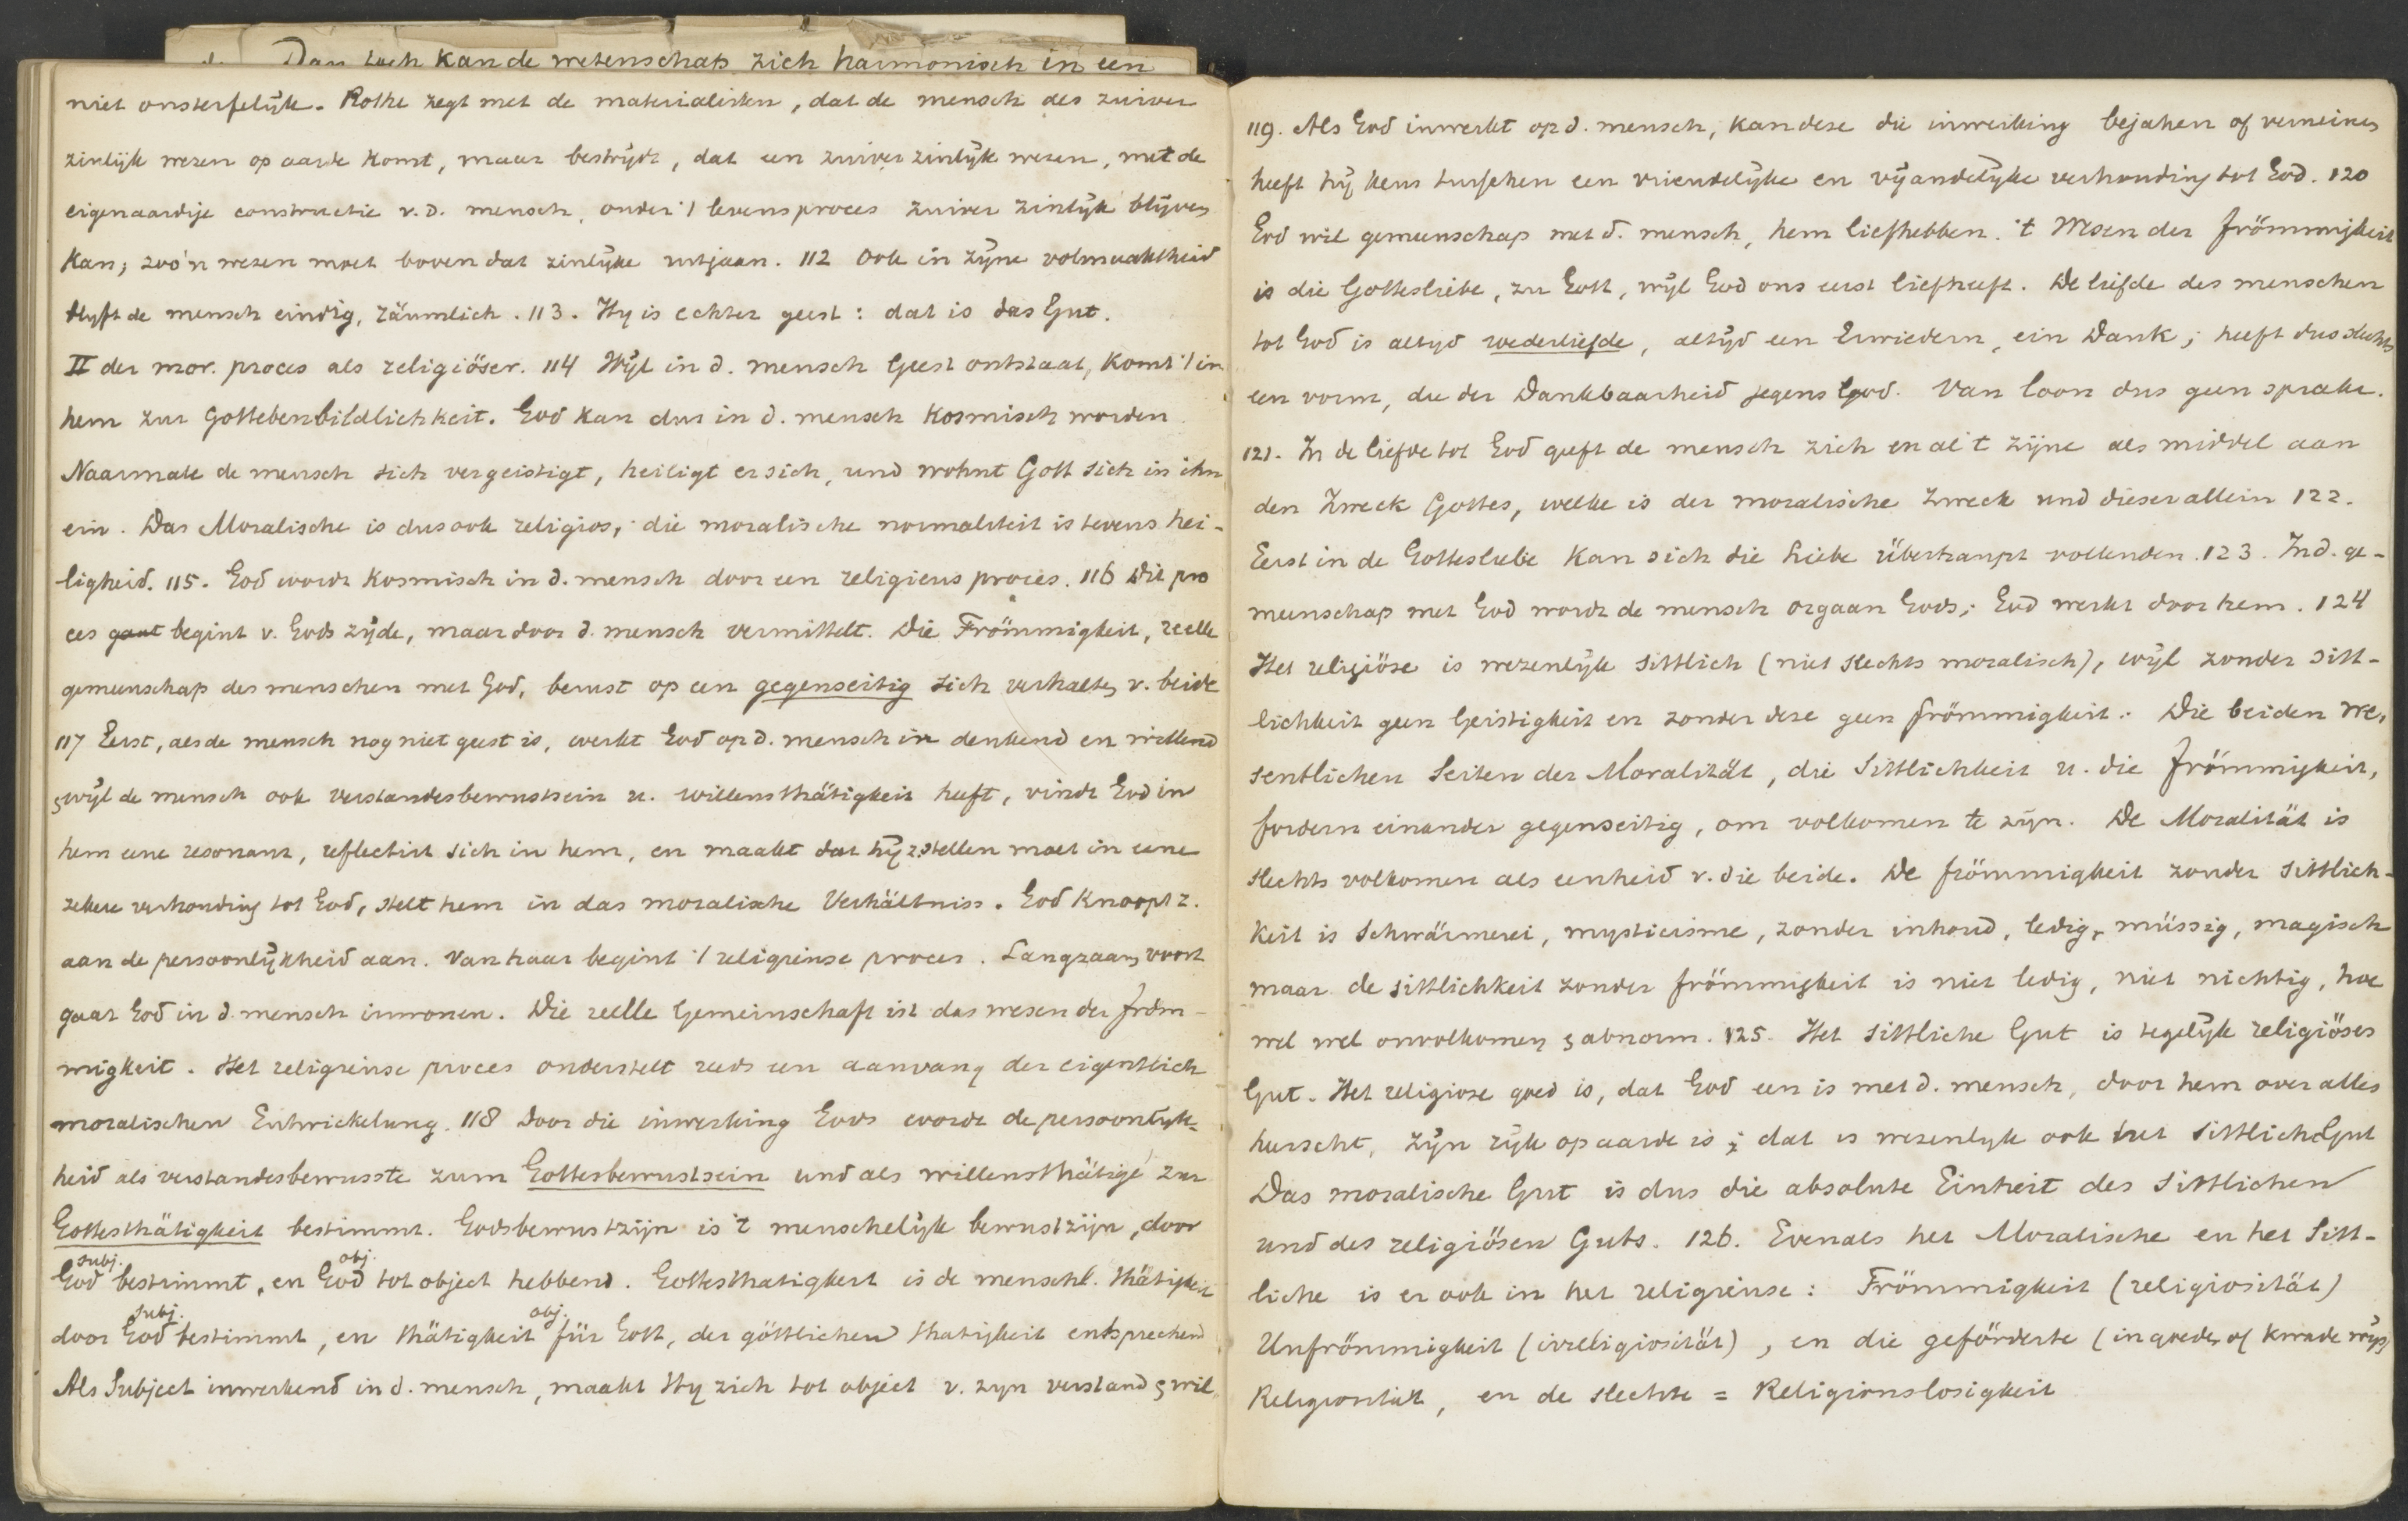 Dan toch kan de wetenschap zich harmonisch in een
niet onsterfelijk. Rothe zegt met de materialisten, dat de mensch als zuiver
zinlijk wezen op aarde komt, maar bestrijdt, dat een zuiver zinlijk wezen, met de
eigenaardige constructie v. d. mensch, onder 't levensproces zuiver zinlijk blijven
kan; zoo'n wezen moet boven dat zinlijke uitgaan. 112 Ook in zijne volmaaktheid
blyft de mensch eindig, räumlich. 113. Hy is echter geest: dat is das Gut.
II der mor. proces als religiöser. 114 Wijl in d. mensch Geest ontstaat, komt 't in
hem zur Gottebenbildlichkeit. God kan dus in d. mensch kosmisch worden
Naarmate de mensch sich vergeistigt, heiligt er sich, und wohnt Gott sich in ihn
ein. Das Moralische is dus ook religios; die moralische normaliteit is tevens hei-
ligheid. 115. God wordt kosmisch in d. mensch door een religieus proces. 116 Dit pro
ces gaat begint v. Gods zijde, maar door d. mensch vermittelt. Die Frömmigkeit, reelle
gemeenschap des menschen met God, berust op een gegenseitig sich verhalten v. beide
117 Eerst, als de mensch nog niet geest is, werkt God op d. mensch in denkend en willend
& wijl de mensch ook verstandesbewustsein u. willensthätigkeit heeft, vindt God in
hem eene resonanz, reflectirt sich in hem, en maakt dat hij z. stellen moet in eene
zekere verhouding tot God, stelt hem in das moralische Verhältniss. God knoopt z.
aan de persoonlijkheid aan. Van haar begint 't religieuse proces. Langzaam voort
gaat God in d. mensch inwonen. Die reelle Gemeinschaft ist das wesen der fröm-
migkeit. Het religieuse proces onderstelt reeds een aanvang der eigentlich
moralischen Entwickelung. 118 Door die inwerking Gods wordt de persoonlyk-
heid als verstandesbewusste zum Gottesbewustsein und als willensthätige zur
Gottesthätigkeit bestimmt. Godsbewustzijn is 't menschelijk bewustzijn, door
subj. obj.
God bestimmt, en God tot object hebbend. Gottesthatigkeit is de menschl. thätigkeit
subj. obj.
door God bestimmt, en thätigkeit für Gott, der göttlichen thatigkeit entsprechend
Als Subject inwerkend in d. mensch, maakt Hy zich tot object v. zyn verstand & wil.
119. Als God inwerkt op d. mensch, kan deze die inwerking bejahen of verneinen
heeft hij keus tusschen een vriendelijke en vijandelijke verhouding tot God. 120
God wil gemeenschap met d. mensch, hem liefhebben. 't Wesen der frömmigkeit
is die Gottesliebe, zu Gott, wijl God ons eerst liefheeft. De liefde des menschen
tot God is altijd wederliefde, altijd een Erwiedern, ein Dank; heeft dus slechts
een vorm, die der Dankbaarheid jegens God. Van loon dus geen sprake.
121. In de liefde tot God geeft de mensch zich en al 't zijne als middel aan
den Zweck Gottes, welke is der moralische Zweck und dieser allein 122.
Eerst in de Gottesliebe kan sich die Liebe überhaupt vollenden. 123. In d. ge-
meenschap met God wordt de mensch orgaan Gods; God werkt door hem. 124
Het religiöse is wezenlijk sittlich (niet slechts moralisch), wijl zonder sitt-
lichkeit geen Geistigkeit en zonder deze geen frömmigkeit. Die beiden we-
sentlichen Seiten der Moralität, die Sittlichkeit u. die frömmigkeit,
fordern einander gegenseitig, om volkomen te zijn. De Moralität is
slechts volkomen als eenheid v. die beide. De frömmigkeit zonder sittlich-
keit is Schwärmerei, mysticisme, zonder inhoud, ledig, müssig, magisch
maar de sittlichkeit zonder frömmigkeit is niet ledig, niet nichtig, hoe
wel wel onvolkomen & abnorm. 125. Het sittliche Gut is tegelijk religiöses
Gut. Het religiose goed is, dat God een is met d. mensch, door hem over alles
heerscht, zijn rijk op aarde is; dat is wezenlyk ook het sittliche Gut
Das moralische Gut is dus die absolute Einheit des sittlichen
und des religiösen Guts. 126. Evenals het Moralische en het Sitt-
liche is er ook in het religieuse: Frömmigkeit (religiosität)
Unfrömmigkeit (irreligiosität), en die geförderte (in goeden of kwade wijs)
Religiosität, en de slechte = Religionslosigkeit